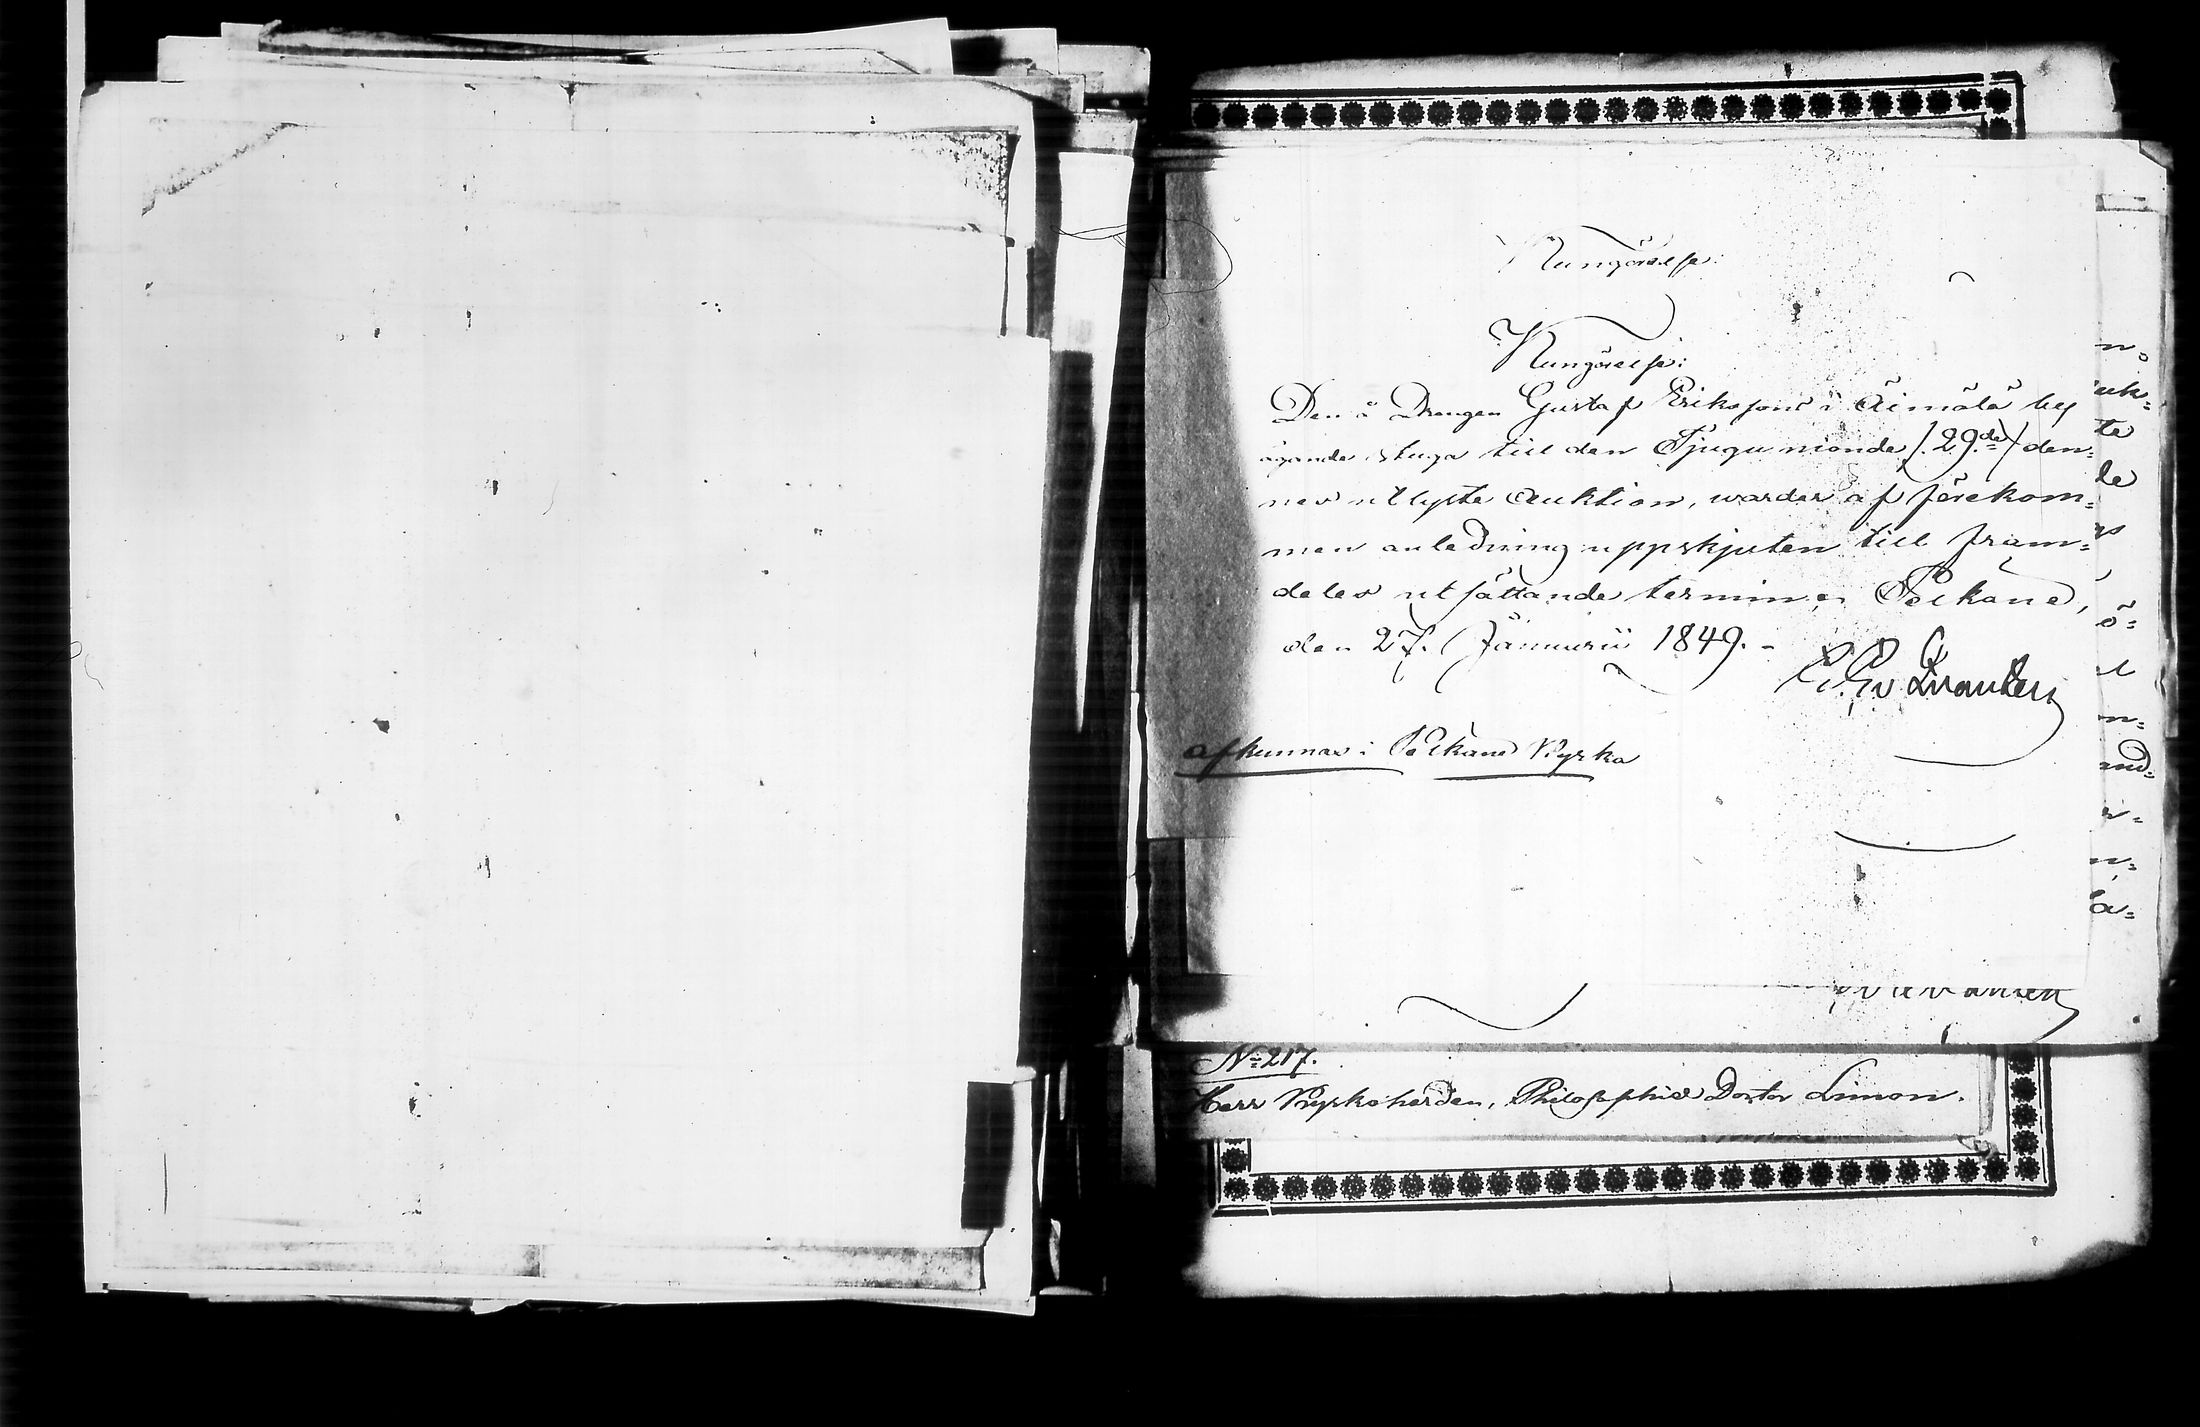 Kungörelse:
Kungörelse:
Den å Drengen Gustaf Erikssons i Äimälä by
ägande stuga till den Tjugunionde /:29:de/ den=
nes utlyste Auktion, warder af förekom=
men anledning uppskjuten till fram=
deles utsättande termin; Pelkäne,
den 27. Januarii 1849. -
afkunnas i Pelkäne Kyrka
n=
uk=
te
de
ö=
n=
and=
r=
n=
la=
No 217.
Herr Kyrkoherden, Philosophiæ Doctor Limon.